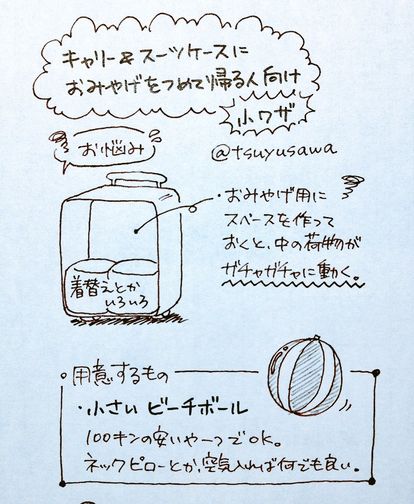 キャリー&スーツケースに
おみやげをつめて帰る人向け
小ワザ
お悩み
@tsuyusawa
・おみやげ用に
スペースを作って
おくと、中の荷物が
ガチャガチャに動く。
着替えとか
いろいろ
用意するもの
・小さい ビーチボール
100キンの安いやつでOK。
ネックピローとか、空気入れば何でも良い。